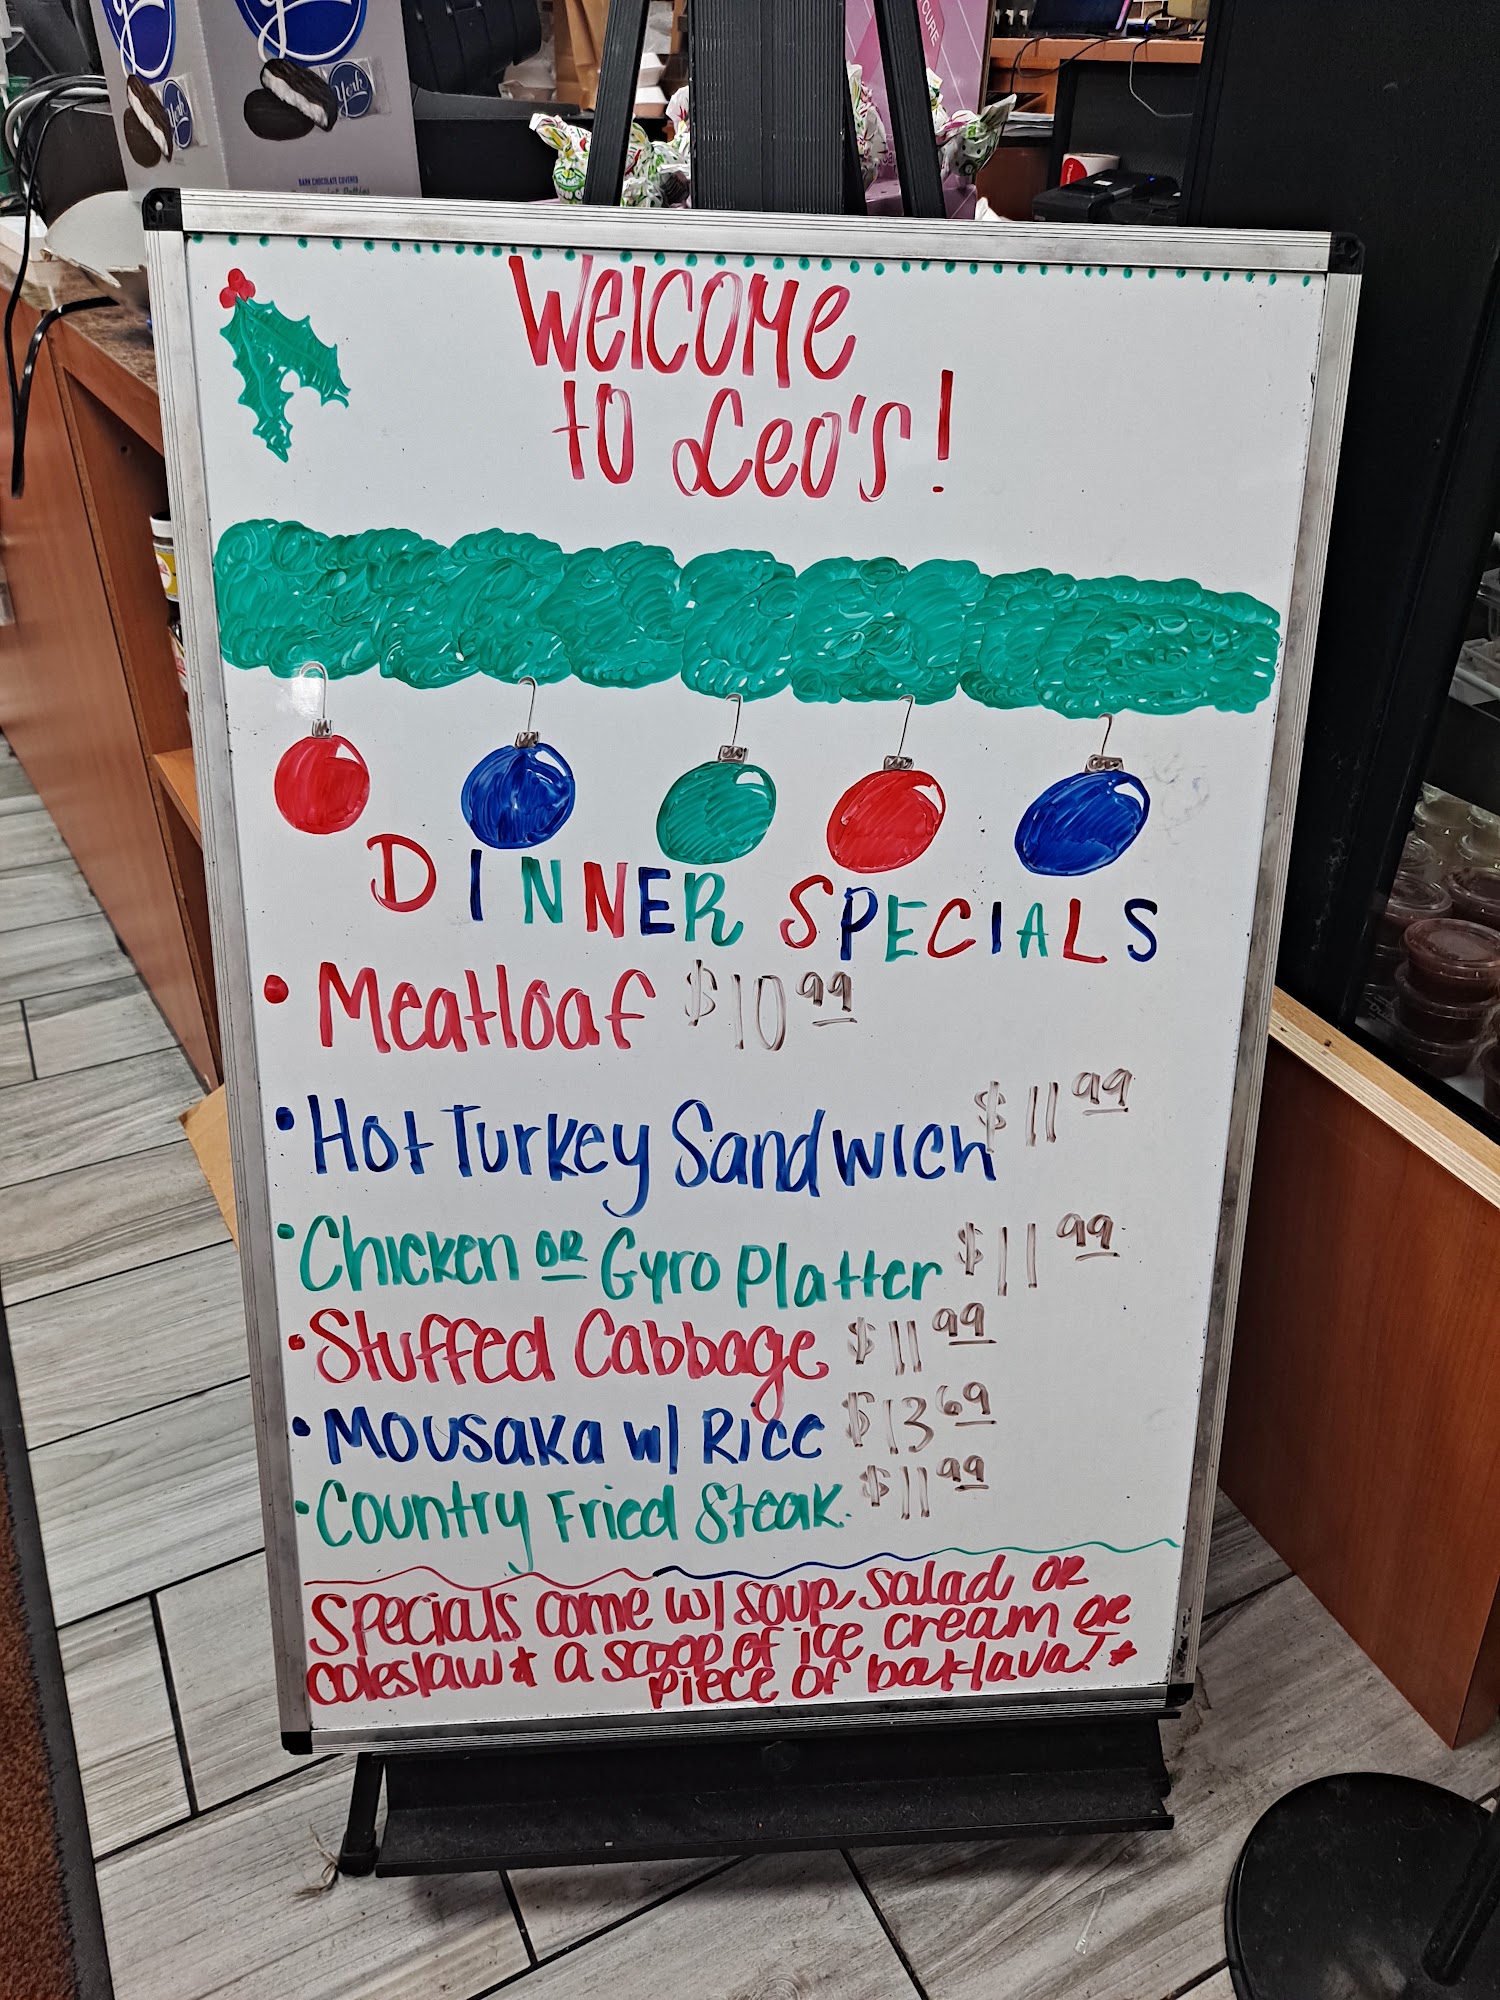 York
York
DARK CHOCOLATE COVERED
CURE
Welcome
to Leo's!
DINNER SPECIALS
• Meatloaf $10.99
• Hot Turkey Sandwich $11.99
• Chicken OR Gyro Platter $11.99
• Stuffed Cabbage $11.99
• Mousaka w/ Rice $13.69
• Country Fried Steak. $11.99
Specials come w/ soup, salad or
coleslaw * a scoop of ice cream or
piece of baklava! *